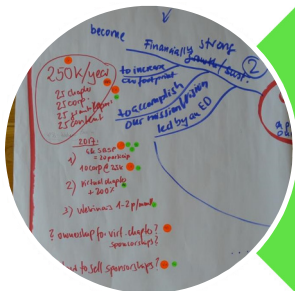 become
Financially strong
growth/sust.
2
to increase
our footprint
to accomplish
our mission/vision
led by an ED
250K/year
25 chapter
25 corp
25 grant
25 content
2017:
1)
10 corp @ 25k
2) Virtual chapter
+ 200?
3) Webinars 1-2 p/month
? ownership for virt. chapter?
sponsorships?
to sell sponsorships?